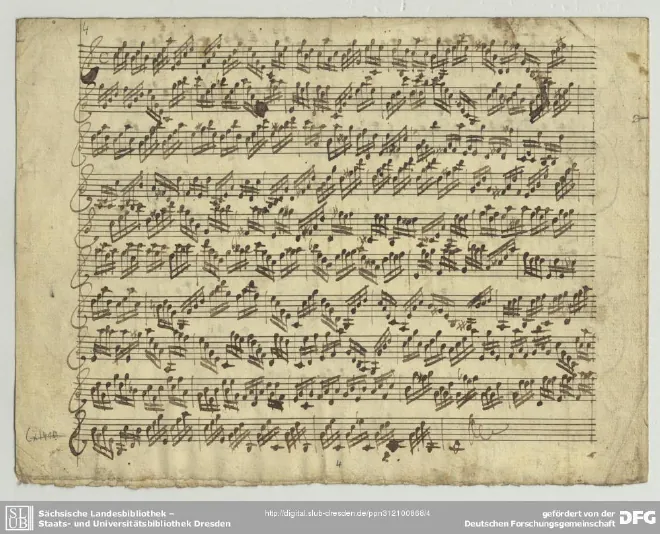 4
4
2.
SLUB
Sächsische Landesbibliothek –
Staats- und Universitätsbibliothek Dresden
http://digital.slub-dresden.de/ppn312100868/4
gefördert von der
Deutschen Forschungsgemeinschaft
DFG